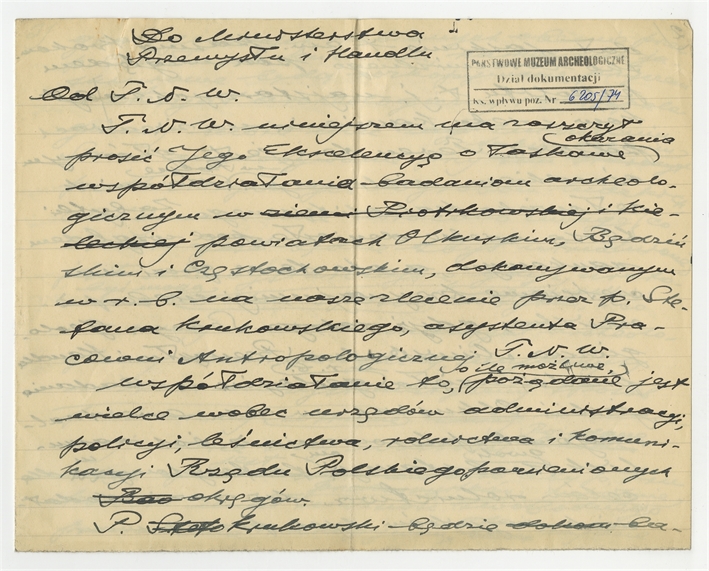 Do Ministerstwa
Przemysłu i Handlu
PAŃSTWOWE MUZEUM ARCHEOLOGICZNE
Dział dokumentacji
Ks. wpływu poz. Nr 6205/74
Od T. N. W.
T. N. W. niniejszem ma zaszczyt
prosić Jego Ekscelencyę o łaskawe okazania
współdziałania badaniom archeolo-
gicznym w ziemi Piotrkowskiej i Kie-
leckiej powiatach Olkuskim, Będziń
skim i Częstochowskim, dokonywanym
w r. b. na nasze zlecenie przez p. Ste-
fana Krukowskiego, asystenta Pra-
cowni Antropologicznej T. N. W.
współdziałanie to, o ile możliwe, pożądane jest
wielce wobec urzędów administracyi,
policyi, leśnictwa, rolnictwa i komuni-
kacyi Rządu Polskiego pomienionych
okręgów.
P. Krukowski będzie ba-